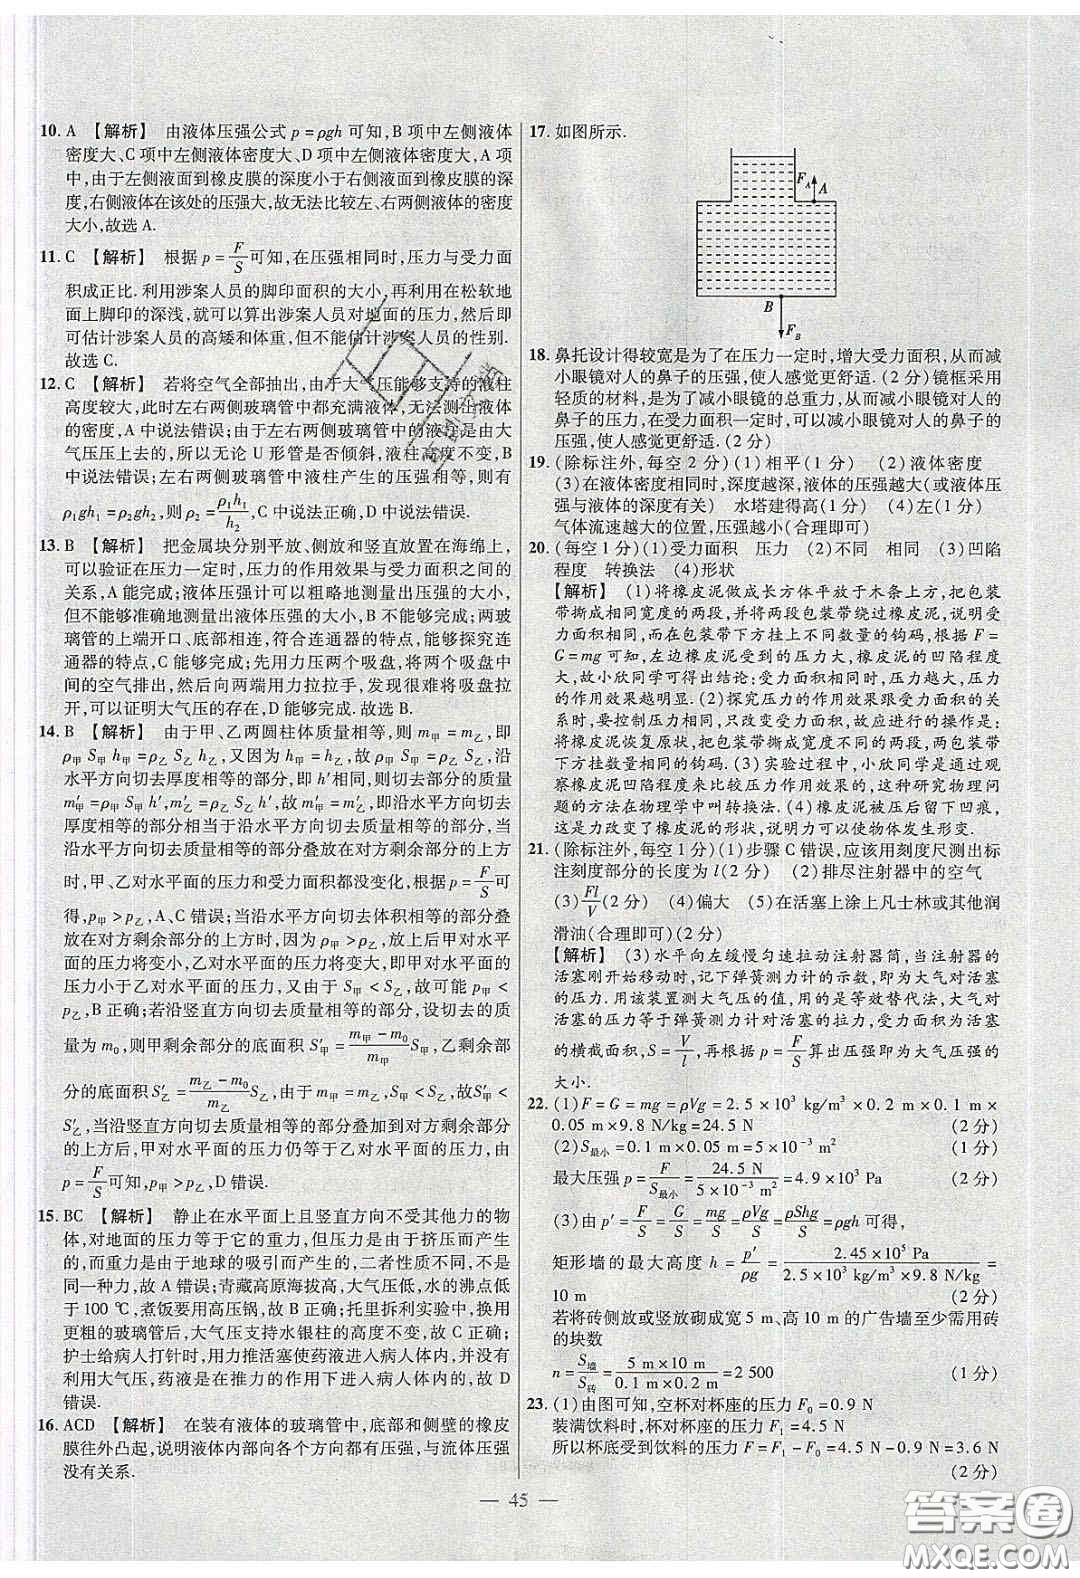 10. A 【解析】 由液体压强公式 p=ρgh 可知,B 项中左侧液体
密度大、C 项中左侧液体密度大、D 项中左侧液体密度大,A 项
中,由于左侧液面到橡皮膜的深度小于右侧液面到橡皮膜的深
度,右侧液体在该处的压强大,故无法比较左、右两侧液体的密度
大小,故选 A.
11. C 【解析】 根据 p=F/S 可知,在压强相同时,压力与受力面
积成正比.利用涉案人员的脚印面积的大小,再利用在松软地
面上脚印的深浅,就可以算出涉案人员对地面的压力,然后即
可估计涉案人员的高矮和体重,但不能估计涉案人员的性别.
故选 C.
12. C 【解析】 若将空气全部抽出,由于大气压能够支持的液柱
高度较大,此时左右两侧玻璃管中都充满液体,无法测出液体
的密度,A 中说法错误;由于左右两侧玻璃管中的液柱是由大
气压压上去的,所以无论 U 形管是否倾斜,液柱高度不变,B
中说法错误;左右两侧玻璃管中液柱产生的压强相等,有
ρ₁gh₁=ρ₂gh₂,则 ρ₂=ρ₁h₁/h₂,C 中说法正确,D 中说法错误.
13. B 【解析】 把金属块分别平放、侧放和竖直放置在海绵上,
可以验证在压力一定时,压力的作用效果与受力面积之间的
关系,A 能完成;液体压强计可以粗略地测量出压强的大小,
但不能够准确地测量出液体压强的大小,B 不能够完成;两玻
璃管的上端开口、底部相连,符合连通器的特点,能够探究连
通器的特点,C 能够完成;先用力压两个吸盘,将两个吸盘中
间的空气排出,然后向两端用力拉拉手,发现很难将吸盘拉
开,可以证明大气压的存在,D 能够完成.故选 B.
14. B 【解析】 由于甲、乙两圆柱体质量相等,则 m甲=m乙,即
ρ甲 S甲 h甲=ρ乙 S乙 h乙,又因为 h甲>h乙,故 ρ甲 S甲<ρ乙 S乙,沿
水平方向切去厚度相等的部分,即 h′相同,切去部分的质量
m′甲=ρ甲 S甲 h′,m′乙=ρ乙 S乙 h′,故 m′甲<m′乙,即沿水平方向切去
厚度相等的部分相当于沿水平方向切去质量相等的部分,当
沿水平方向切去质量相等的部分叠放在对方剩余部分的上方
时,甲、乙对水平面的压力和受力面积都没变化,根据 p=F/S可
得,p甲>p乙,A、C 错误;当沿水平方向切去体积相等的部分叠
放在对方剩余部分的上方时,因为 ρ甲>ρ乙,所以甲对水平面
的压力将变小,乙对水平面的压力将变大,即甲对水平面的
压力小于乙对水平面的压力,又由于 S甲>S乙,故 p甲<
p乙,B 正确;若沿竖直方向切去部分的质量,设切去的质
量为 m₀,则甲剩余部分的底面积 S′甲=(m甲-m₀)/m甲 S甲,乙剩余部
分的底面积 S′乙=(m乙-m₀)/m乙 S乙,由于 m甲=m乙,S甲<S乙,故S′甲<
S′乙,当沿竖直方向切去质量相等的部分叠加到对方剩余部分
的上方后,甲对水平面的压力仍等于乙对水平面的压力,由
p=F/S可知,p甲>p乙,D 错误.
15. BC 【解析】 静止在水平面上且竖直方向不受其他力的物
体,对地面的压力等于它的重力,但压力是由于挤压而产生
的,而重力是由于地球的吸引而产生的,二者性质不同,不是
同一种力,故 A 错误;青藏高原海拔高,大气压低,水的沸点低
于100 ℃,煮饭要用高压锅,故 B 正确;托里拆利实验中,换用
更粗的玻璃管后,大气压支持水银柱的高度不变,故 C 正确;
护士给病人打针时,用力推活塞使药液进入病人体内,并没有
利用大气压,药液是在推力的作用下进入病人体内的,故 D
错误.
16. ACD 【解析】 在装有液体的玻璃管中,底部和侧壁的橡皮
膜往外凸起,说明液体内部向各个方向都有压强,与流体压强
没有关系.
17. 如图所示.
F_A A
B
F_B
18. 鼻托设计得较宽是为了在压力一定时,增大受力面积,从而减
小眼镜对人的鼻子的压强,使人感觉更舒适.(2 分)镜框采用
轻质的材料,是为了减小眼镜的总重力,从而减小眼镜对人的
鼻子的压力,在受力面积一定时,可以减小眼镜对人的鼻子的
压强,使人感觉更舒适.(2 分)
19. (除标注外,每空 2 分)(1)相平(1 分) (2)液体密度
(3)在液体密度相同时,深度越深,液体的压强越大(或液体压
强与液体的深度有关) 水塔建得高(1 分) (4)左(1 分)
气体流速越大的位置,压强越小(合理即可)
20. (每空1 分)(1)受力面积 压力 (2)不同 相同 (3)凹陷
程度 转换法 (4)形状
【解析】 (1)将橡皮泥做成长方体平放于木条上方,把包装
带撕成相同宽度的两段,并将两段包装带绕过橡皮泥,说明受
力面积相同,而在包装带下方挂上不同数量的钩码,根据 F=
G=mg 可知,左边橡皮泥受到的压力大,橡皮泥的凹陷程度
大,故小欣同学可得出结论:受力面积相同时,压力越大,压力
的作用效果越明显.(2)探究压力的作用效果跟受力面积的关
系时,要控制压力相同,只改变受力面积,故应进行的操作是:
将橡皮泥恢复原状,把包装带撕成宽度不同的两段,包装带下
方挂数量相同的钩码.(3)实验过程中,小欣同学是通过观
察橡皮泥凹陷程度来比较压力作用效果的,这种研究物理问
题的方法在物理学中叫转换法.(4)橡皮泥被压后留下凹痕,
这是力改变了橡皮泥的形状,说明力可以使物体发生形变.
21. (除标注外,每空1 分)(1)步骤 C 错误,应该用刻度尺测出标
注刻度部分的长度为 l(2 分) (2)排尽注射器中的空气
(3)Fl/V(2 分) (4)偏大 (5)在活塞上涂上凡士林或其他润
滑油(合理即可)(2 分)
【解析】 (3)水平向左缓慢匀速拉动注射器筒,当注射器的
活塞刚开始移动时,记下弹簧测力计的示数,即为大气对活塞
的压力.用该装置测大气压的值,用的是等效替代法,大气对
活塞的压力等于弹簧测力计对活塞的拉力,受力面积为活塞
的横截面积,S=V/l,再根据 p=F/S算出压强即为大气压强的
大小.
22. (1)F=G=mg=ρVg=2.5×10³ kg/m³×0.2 m×0.1 m×
0.05 m×9.8 N/kg=24.5 N (2 分)
(2)S最小=0.1 m×0.05 m=5×10⁻³ m² (1 分)
最大压强 p=F/S最小=24.5 N/(5×10⁻³ m²)=4.9×10³ Pa (2 分)
(3)由 p′=F/S=G/S=mg/S=ρVg/S=ρShg/S=ρgh 可得,
矩形墙的最大高度 h=p′/ρg=2.45×10⁵ Pa/(2.5×10³ kg/m³×9.8 N/kg)=
10 m (2 分)
若将砖侧放或竖放砌成宽 5 m、高 10 m 的广告墙至少需用砖
的块数
n=S墙/S砖=(5 m×10 m)/(0.1 m×0.2 m)=2 500 (1 分)
23. (1)由图可知,空杯对杯座的压力 F₀=0.9 N
装满饮料时,杯对杯座的压力 F₁=4.5 N
所以杯底受到饮料的压力 F=F₁-F₀=4.5 N-0.9 N=3.6 N
(2 分)
— 45 —
答案圈
MXQE.COM